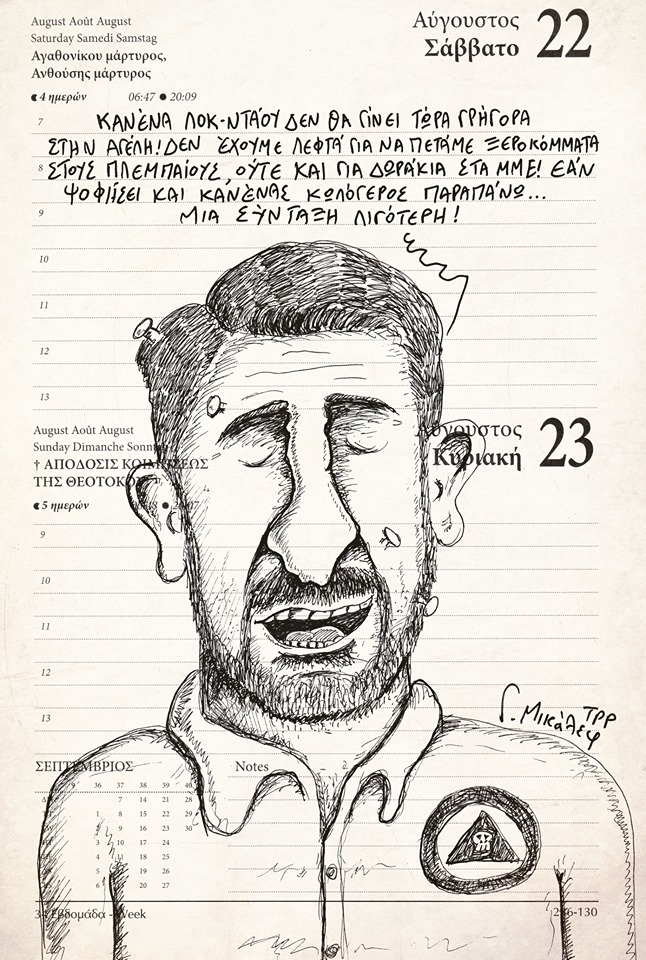 August Août August
Saturday Samedi Samstag
Αγαθονίκου μάρτυρος,
Ανθούσης μάρτυρος
4 ημερών 06:47 ● 20:09
Αύγουστος
Σάββατο 22
7
ΚΑΝΈΝΑ ΛΟΚ-ΝΤΆΟΥ ΔΕΝ ΘΑ ΓΊΝΕΙ ΤΏΡΑ ΓΡΉΓΟΡΑ
ΣΤΗΝ ΑΓΈΛΗ! ΔΕΝ ΈΧΟΥΜΕ ΛΕΦΤΆ ΓΙΑ ΝΑ ΠΕΤΆΜΕ ΞΕΡΟΚΌΜΜΑΤΑ
8
ΣΤΟΥΣ ΠΛΕΜΠΑΊΟΥΣ, ΟΎΤΕ ΚΑΙ ΓΙΑ ΔΩΡΆΚΙΑ ΣΤΑ ΜΜΕ! ΕΆΝ
ΨΟΦΉΣΕΙ ΚΑΙ ΚΑΝΈΝΑΣ ΚΩΛΌΓΕΡΟΣ ΠΑΡΑΠΆΝΩ...
9
ΜΙΑ ΣΎΝΤΑΞΗ ΛΙΓΌΤΕΡΗ!
10
11
12
13
August Août August
Sunday Dimanche
† ΑΠΟΔΟΣΙΣ ΚΟΙΜΗΣΕΩΣ
ΤΗΣ ΘΕΟΤΟΚΟΥ
5 ημερών
Αύγουστος
Κυριακή 23
9
10
11
12
13
Γ. Μικάλεφ
ΤΡΡ
ΣΕΠΤΕΜΒΡΙΟΣ
Notes
36 37 38 39 40
7 14 21 28
1 8 15 22 29
9 16 23 30
3 10 17 24
4 11 18 25
5 19 26
6 20 27
Εβδομάδα - Week
-130